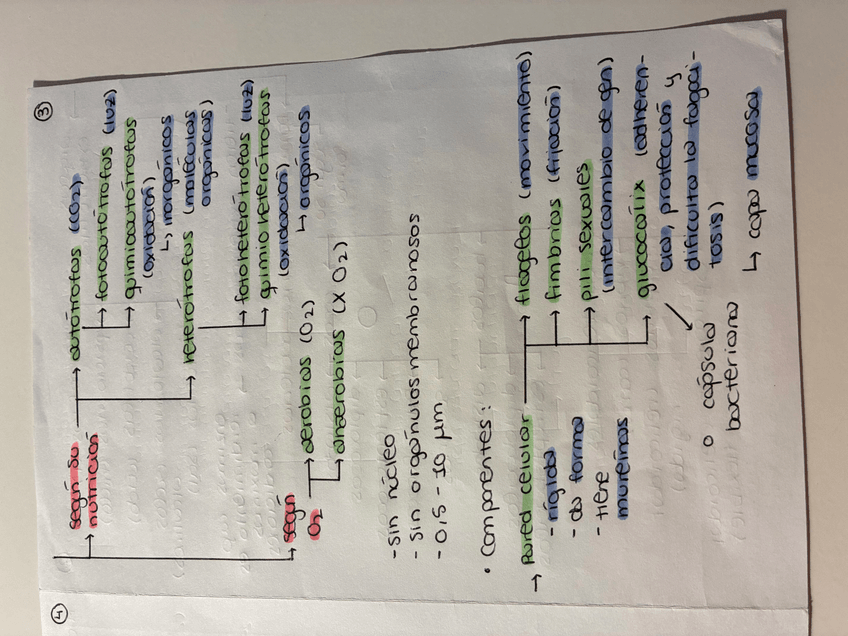 ③
según su
nutrición
→ autótrofas (CO2)
→ fotoautótrofas (luz)
→ quimioautótrofas
(oxidación)
↳ inorgánicos
→ heterótrofas (moléculas
orgánicas)
→ fotoheterótrofas (luz)
→ quimioheterótrofas
(oxidación)
↳ orgánicos
según
O2
→ aerobias (O2)
→ anaerobias (X O2)
- sin núcleo
- sin orgánulos membranosos
- 0,5 - 10 μm
• componentes:
→ Pared celular
- rígida
- da forma
- tiene
mureínas
→ flagelos (movimiento)
→ fimbrias (fijación)
→ pili sexuales
(intercambio de gen)
→ glucocálix (adheren-
cia, protección y
dificulta la fagoci-
tosis)
↳ capa mucosa
o cápsula
bacteriana
④